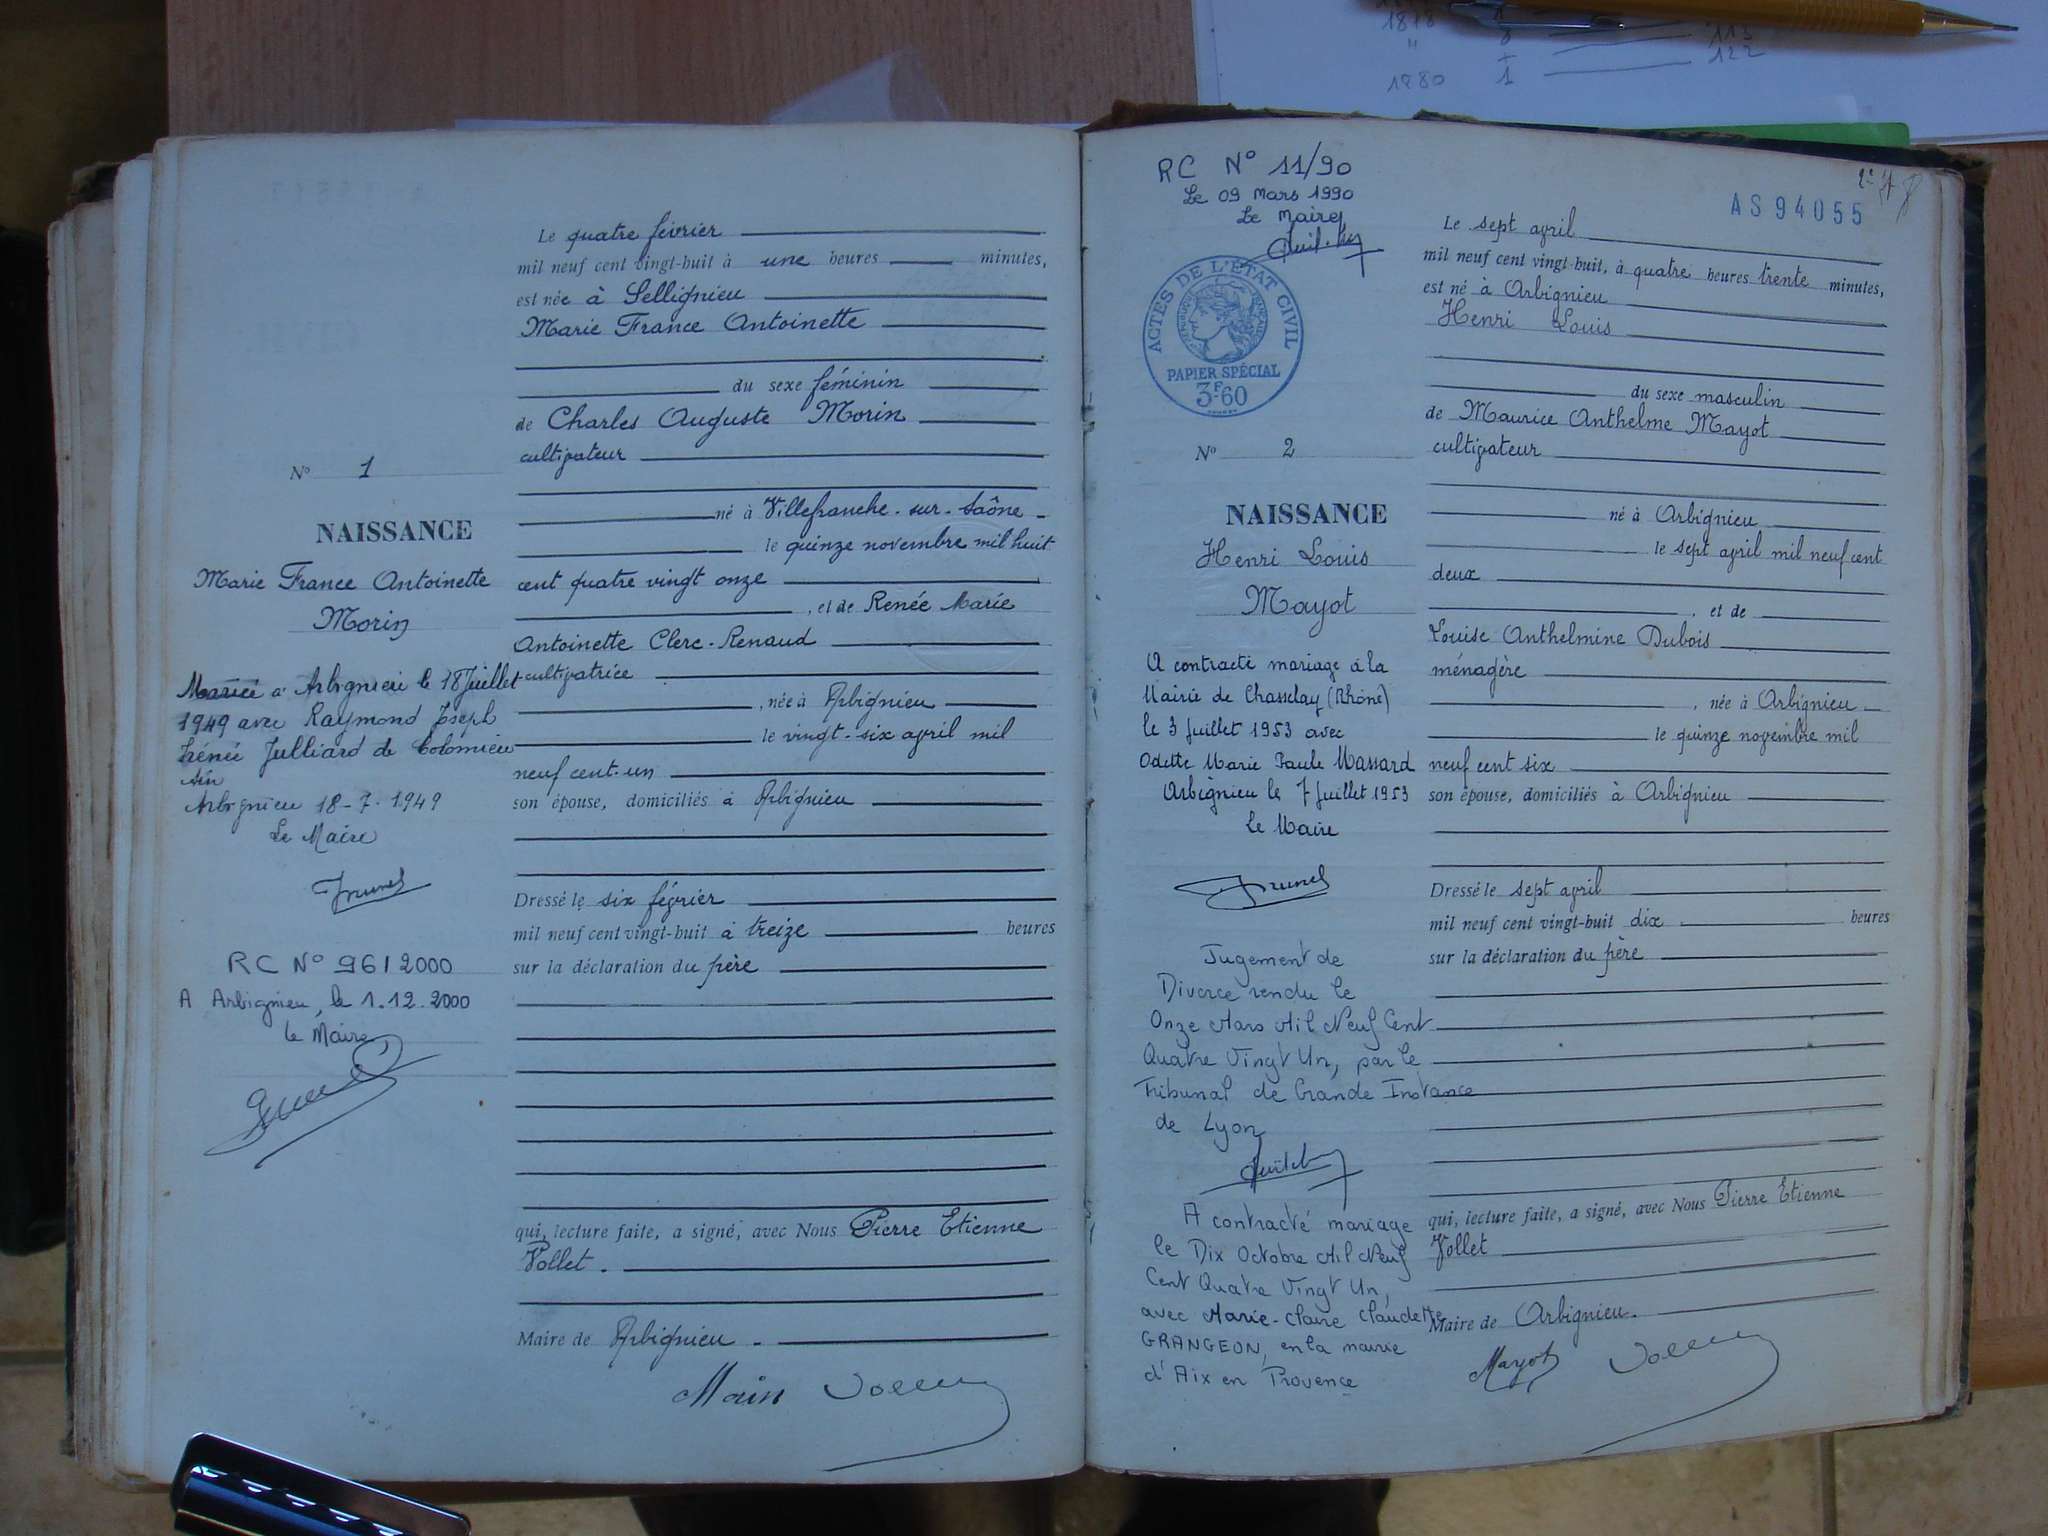 1878 1 113
" 8 122
1880 1
N° 1
NAISSANCE
Marie France Antoinette
Morin
Mariée a Arbignieu le 18 Juillet
1949 avec Raymond Joseph
Irénée Julliard de Colomieu
Ain
Arbignieu 18-7-1949
Le Maire
RC N° 96/2000
A Arbignieu, le 1.12.2000
le Maire,
Le quatre février
mil neuf cent vingt-huit à une heures minutes,
est née à Sellignieu
Marie France Antoinette
du sexe féminin
de Charles Auguste Morin
cultivateur
né à Villefranche-sur-Saône
le quinze novembre mil huit
cent quatre vingt onze
, et de Renée Marie
Antoinette Clerc-Renaud
cultivatrice
, née à Arbignieu
le vingt-six avril mil
neuf cent-un
son épouse, domiciliés à Arbignieu
Dressé le six février
mil neuf cent vingt-huit à treize heures
sur la déclaration du père
qui, lecture faite, a signé, avec Nous Pierre Etienne
Vollet.
Maire de Arbignieu.
Morin
RC N° 11/90
Le 09 Mars 1990
Le Maire
ACTES DE L'ÉTAT CIVIL
PAPIER SPÉCIAL
3F.60
N° 2
NAISSANCE
Henri Louis
Mayot
A contracté mariage à la
Mairie de Chasselay (Rhône)
le 3 Juillet 1953 avec
Odette Marie Paule Massard
Arbignieu le 7 Juillet 1953
le Maire
Jugement de
Divorce rendu le
Onze Mars Mil Neuf Cent
Quatre Vingt Un, par le
Tribunal de Grande Instance
de Lyon
A contracté mariage
le Dix Octobre Mil Neuf
Cent Quatre Vingt Un,
avec Marie-Claire Claudette
GRANGEON, en la mairie
d'Aix en Provence
AS 94055
Le sept avril
mil neuf cent vingt-huit, à quatre heures trente minutes,
est né à Arbignieu
Henri Louis
du sexe masculin
de Maurice Anthelme Mayot
cultivateur
né à Arbignieu
le sept avril mil neuf cent
deux
, et de
Louise Anthelmine Dubois
ménagère
, née à Arbignieu
le quinze novembre mil
neuf cent six
son épouse, domiciliés à Arbignieu
Dressé le sept avril
mil neuf cent vingt-huit dix heures
sur la déclaration du père
qui, lecture faite, a signé, avec Nous Pierre Etienne
Vollet
Maire de Arbignieu.
Mayot